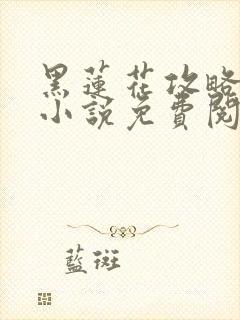 黑蓮花攻略
小說免費閱
藍斑